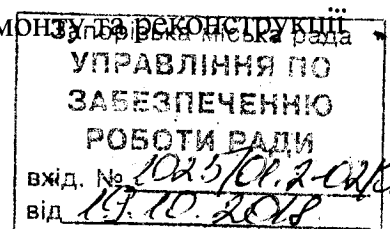 монту та реконструкції
Запорізька міська рада
УПРАВЛІННЯ ПО
ЗАБЕЗПЕЧЕННЮ
РОБОТИ РАДИ
вхід. № 1025/01.2-02/
від 19.10.2018